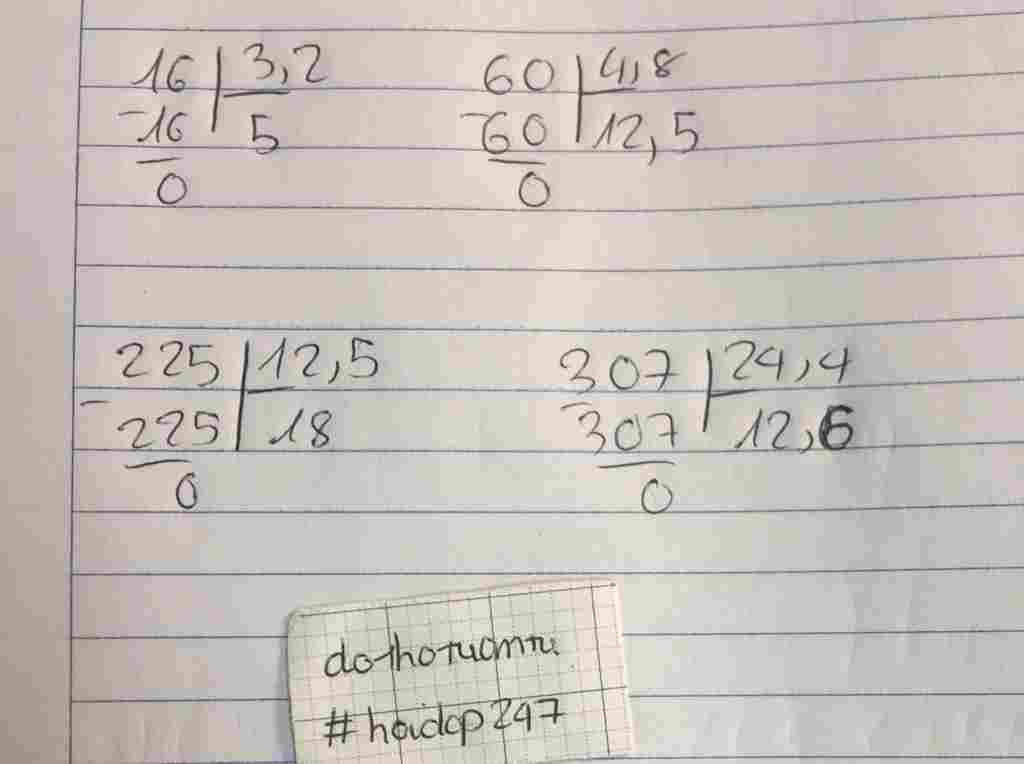 16 | 3,2
-16 | 5
0
60 | 4,8
-60 | 12,5
0
225 | 12,5
-225 | 18
0
307 | 24,4
-307 | 12,6
0
#hoidap247